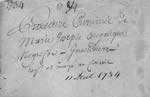 1734
Procedure Criminelle de
Marie Joseph Angelique
Negresse — Incendiere
11 Avril 1734